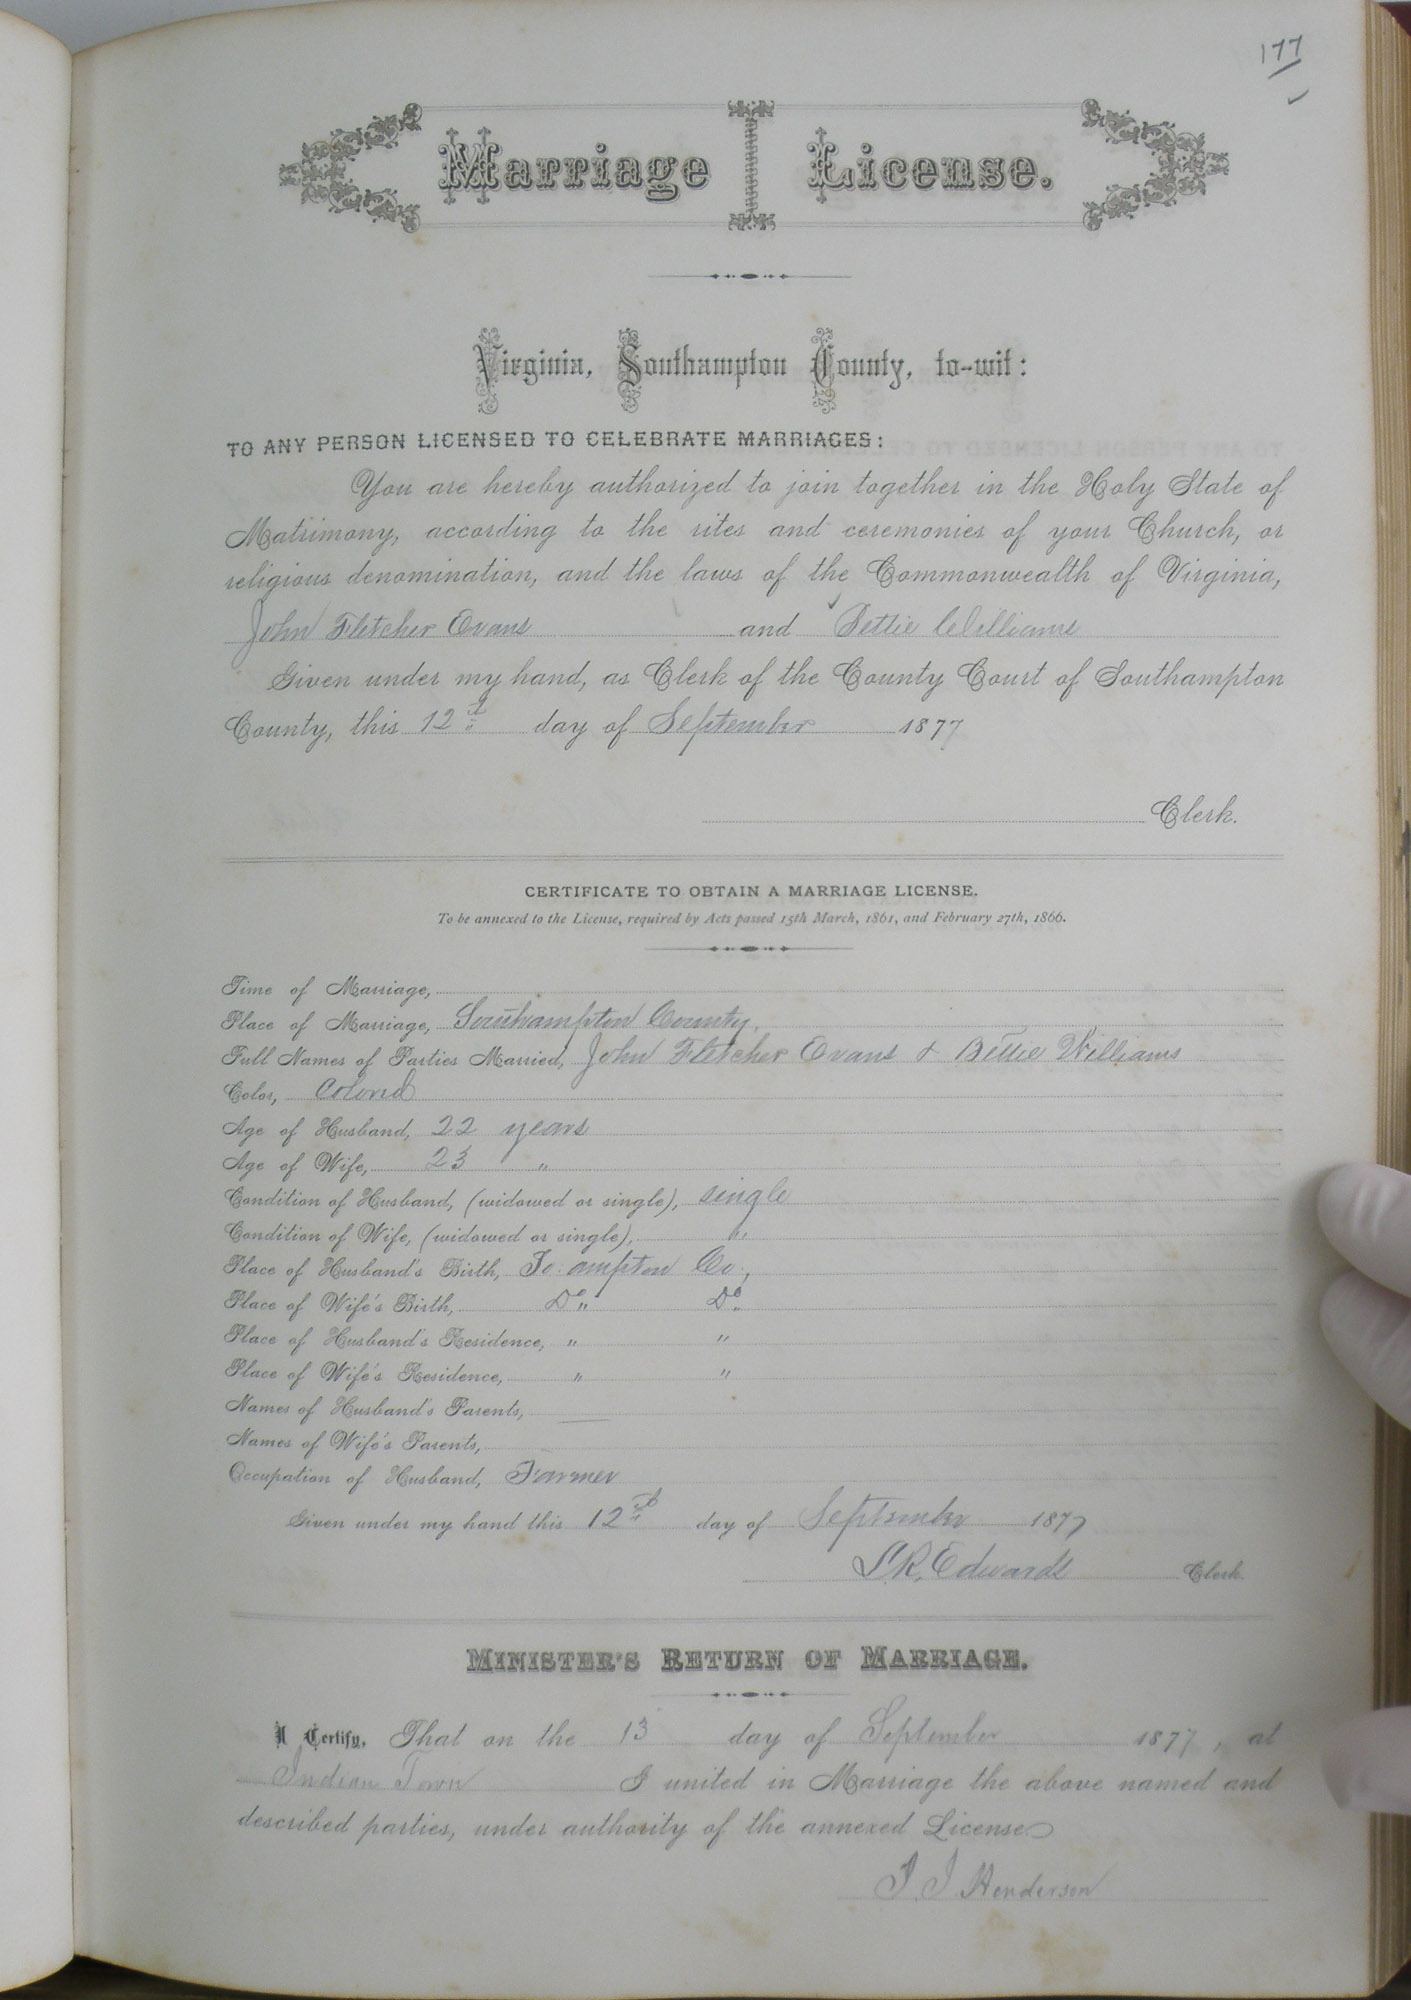 177
Marriage License.
Virginia, Southampton County, to-wit:
TO ANY PERSON LICENSED TO CELEBRATE MARRIAGES:
You are hereby authorized to join together in the Holy State of
Matrimony, according to the rites and ceremonies of your Church, or
religious denomination, and the laws of the Commonwealth of Virginia,
John Fletcher Evans and Bettie Williams
Given under my hand, as Clerk of the County Court of Southampton
County, this 12th day of September 1877
Clerk.
CERTIFICATE TO OBTAIN A MARRIAGE LICENSE.
To be annexed to the License, required by Acts passed 15th March, 1861, and February 27th, 1866.
Time of Marriage,
Place of Marriage, Southampton County,
Full Names of Parties Married, John Fletcher Evans & Bettie Williams
Color, Colored
Age of Husband, 22 years
Age of Wife, 23 "
Condition of Husband, (widowed or single), single
Condition of Wife, (widowed or single), "
Place of Husband's Birth, So.ampton Co.,
Place of Wife's Birth, Do " Do
Place of Husband's Residence, " "
Place of Wife's Residence, " "
Names of Husband's Parents, —
Names of Wife's Parents,
Occupation of Husband, Farmer
Given under my hand this 12th day of September 1877
L.R. Edwards Clerk.
MINISTER'S RETURN OF MARRIAGE.
I Certify, That on the 13 day of September 1877, at
Indian Town I united in Marriage the above named and
described parties, under authority of the annexed License
J. J. Henderson